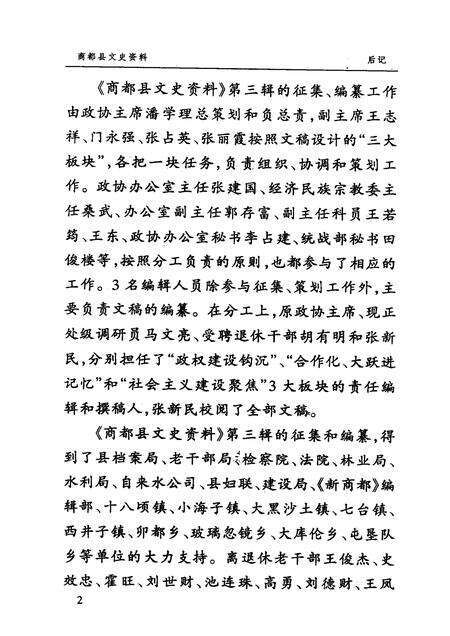 商都县文史资料 后记
《商都县文史资料》第三辑的征集、编纂工作
由政协主席潘学理总策划和负总责，副主席王志
祥、门永强、张占英、张丽霞按照文稿设计的“三大
板块”，各把一块任务，负责组织、协调和策划工
作。政协办公室主任张建国、经济民族宗教委主
任桑武、办公室副主任郭存富、副主任科员王若
筠、王东、政协办公室秘书李占建、统战部秘书田
俊楼等，按照分工负责的原则，也都参与了相应的
工作。3名编辑人员除参与征集、策划工作外，主
要负责文稿的编纂。在分工上，原政协主席、现正
处级调研员马文亮、受聘退休干部胡有明和张新
民，分别担任了“政权建设钩沉”、“合作化、大跃进
记忆”和“社会主义建设聚焦”3大板块的责任编
辑和撰稿人，张新民校阅了全部文稿。
《商都县文史资料》第三辑的征集和编纂，得
到了县档案局、老干部局、检察院、法院、林业局、
水利局、自来水公司、县妇联、建设局、《新商都》编
辑部、十八顷镇、小海子镇、大黑沙土镇、七台镇、
西井子镇、卯都乡、玻璃忽镜乡、大库伦乡、屯垦队
乡等单位的大力支持。离退休老干部王俊杰、史
效忠、霍旺、刘世财、池连珠、高勇、刘德财、王凤
2